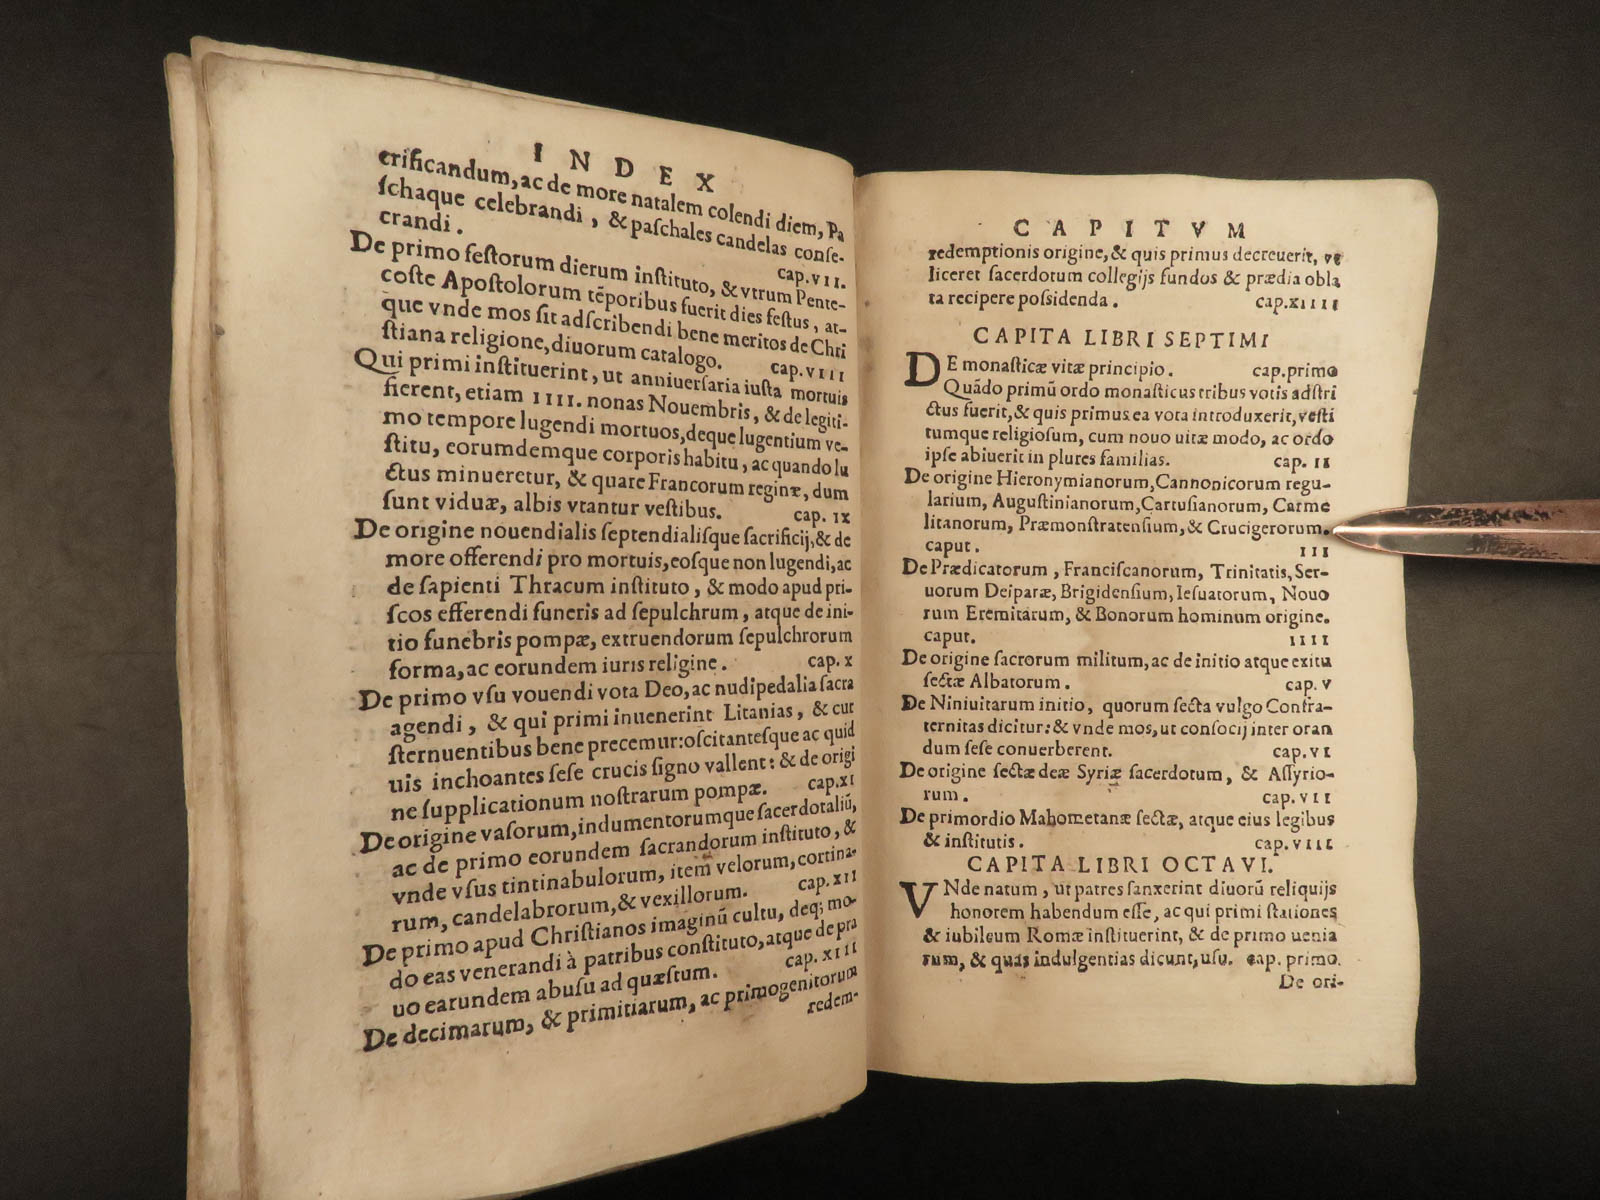 INDEX
crificandum, ac de more natalem colendi diem, Pa
ſchaque celebrandi, & paſchales candelas conſe-
crandi. cap. VII.
De primo feſtorum dierum inſtituto, & vtrum Pente-
coſte Apoſtolorum tēporibus fuerit dies feſtus, at-
que vnde mos ſit adſcribendi bene meritos de Chri
ſtiana religione, diuorum catalogo. cap. VIII
Qui primi inſtituerint, ut anniuerſaria iuſta mortuis
fierent, etiam IIII. nonas Nouembris, & de legiti-
mo tempore lugendi mortuos, deque lugentium ve-
ſtitu, eorumdemque corporis habitu, ac quando lu
ctus minueretur, & quare Francorum reginæ, dum
ſunt viduæ, albis vtantur veſtibus. cap. IX
De origine nouendialis ſeptendialiſque ſacrificij, & de
more offerendi pro mortuis, eoſque non lugendi, ac
de ſapienti Thracum inſtituto, & modo apud pri-
ſcos efferendi funeris ad ſepulchrum, atque de ini-
tio funebris pompæ, extruendorum ſepulchrorum
forma, ac eorundem iuris religine. cap. X
De primo vſu vouendi vota Deo, ac nudipedalia ſacra
agendi, & qui primi inuenerint Litanias, & cur
ſternuentibus bene precemur: oſcitanteſque ac quid
uis inchoantes ſeſe crucis ſigno vallent: & de origi
ne ſupplicationum noſtrarum pompæ. cap. XI
De origine vaſorum, indumentorumque ſacerdotaliū,
ac de primo eorundem ſacrandorum inſtituto, &
vnde vſus tintinabulorum, item velorum, cortina-
rum, candelabrorum, & vexillorum. cap. XII
De primo apud Chriſtianos imaginū cultu, deq; mo-
do eas venerandi à patribus conſtituto, atque de pra
uo earundem abuſu ad quæſtum. cap. XIII
De decimarum, & primitiarum, ac primogenitorum
redem-
CAPITVM
redemptionis origine, & quis primus decreuerit, vt
liceret ſacerdotum collegijs fundos & prædia obla
ta recipere poſsidenda. cap. XIIII
CAPITA LIBRI SEPTIMI
DE monaſticæ vitæ principio. cap. primo
Quādo primū ordo monaſticus tribus votis adſtri
ctus fuerit, & quis primus ea vota introduxerit, veſti
tumque religioſum, cum nouo uitæ modo, ac ordo
ipſe abiuerit in plures familias. cap. II
De origine Hieronymianorum, Cannonicorum regu-
larium, Auguſtinianorum, Cartuſianorum, Carme
litanorum, Præmonſtratenſium, & Crucigerorum.
caput. III
De Prædicatorum, Franciſcanorum, Trinitatis, Ser-
uorum Deiparæ, Brigidenſium, Ieſuatorum, Nouo
rum Eremitarum, & Bonorum hominum origine.
caput. IIII
De origine ſacrorum militum, ac de initio atque exitu
ſectæ Albatorum. cap. V
De Niniuitarum initio, quorum ſecta vulgo Confra-
ternitas dicitur: & vnde mos, ut conſocij inter oran
dum ſeſe conuerberent. cap. VI
De origine ſectæ deæ Syriæ ſacerdotum, & Aſſyrio-
rum. cap. VII
De primordio Mahometanæ ſectæ, atque eius legibus
& inſtitutis. cap. VIII
CAPITA LIBRI OCTAVI.
VNde natum, ut patres ſanxerint diuorū reliquijs
honorem habendum eſſe, ac qui primi ſtationes
& iubileum Romæ inſtituerint, & de primo uenia
rum, & quas indulgentias dicunt, uſu. cap. primo.
De ori-